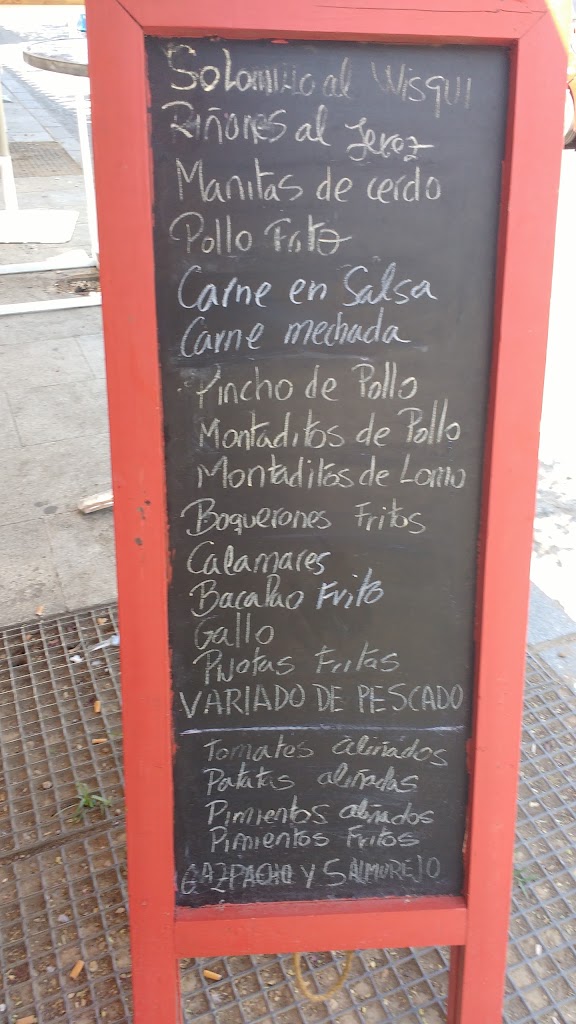 Solomillo al Wisqui
Riñones al Jerez
Manitas de cerdo
Pollo Frito
Carne en Salsa
Carne mechada
Pincho de Pollo
Montaditos de Pollo
Montaditos de Lomo
Boquerones Fritos
Calamares
Bacalao Frito
Gallo
Puotas Fritas
VARIADO DE PESCADO
Tomates aliñados
Patatas aliñadas
Pimientos aliñados
Pimientos Fritos
GAZPACHO Y SALMUREJO